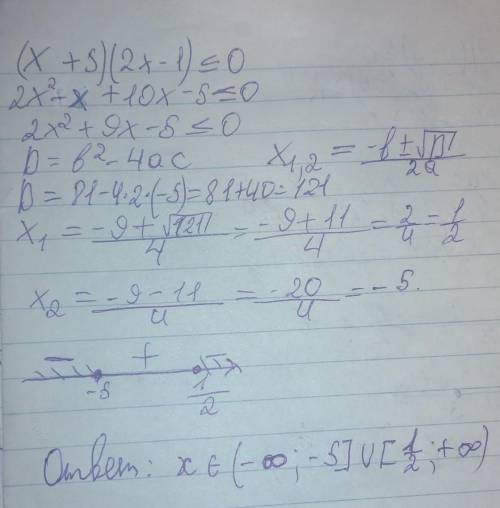 (x + 5)(2x-1) ≤ 0
2x² - x + 10x - 5 ≤ 0
2x² + 9x - 5 ≤ 0
D = b² - 4ac
x₁,₂ = (-b ± √D)/2a
D = 81 - 4·2·(-5) = 81 + 40 = 121
x₁ = (-9 + √121)/4 = (-9 + 11)/4 = 2/4 = 1/2
x₂ = (-9 - 11)/4 = -20/4 = -5.
- + -
-5 1/2
Ответ: x ∈ (-∞; -5] ∪ [1/2; +∞)